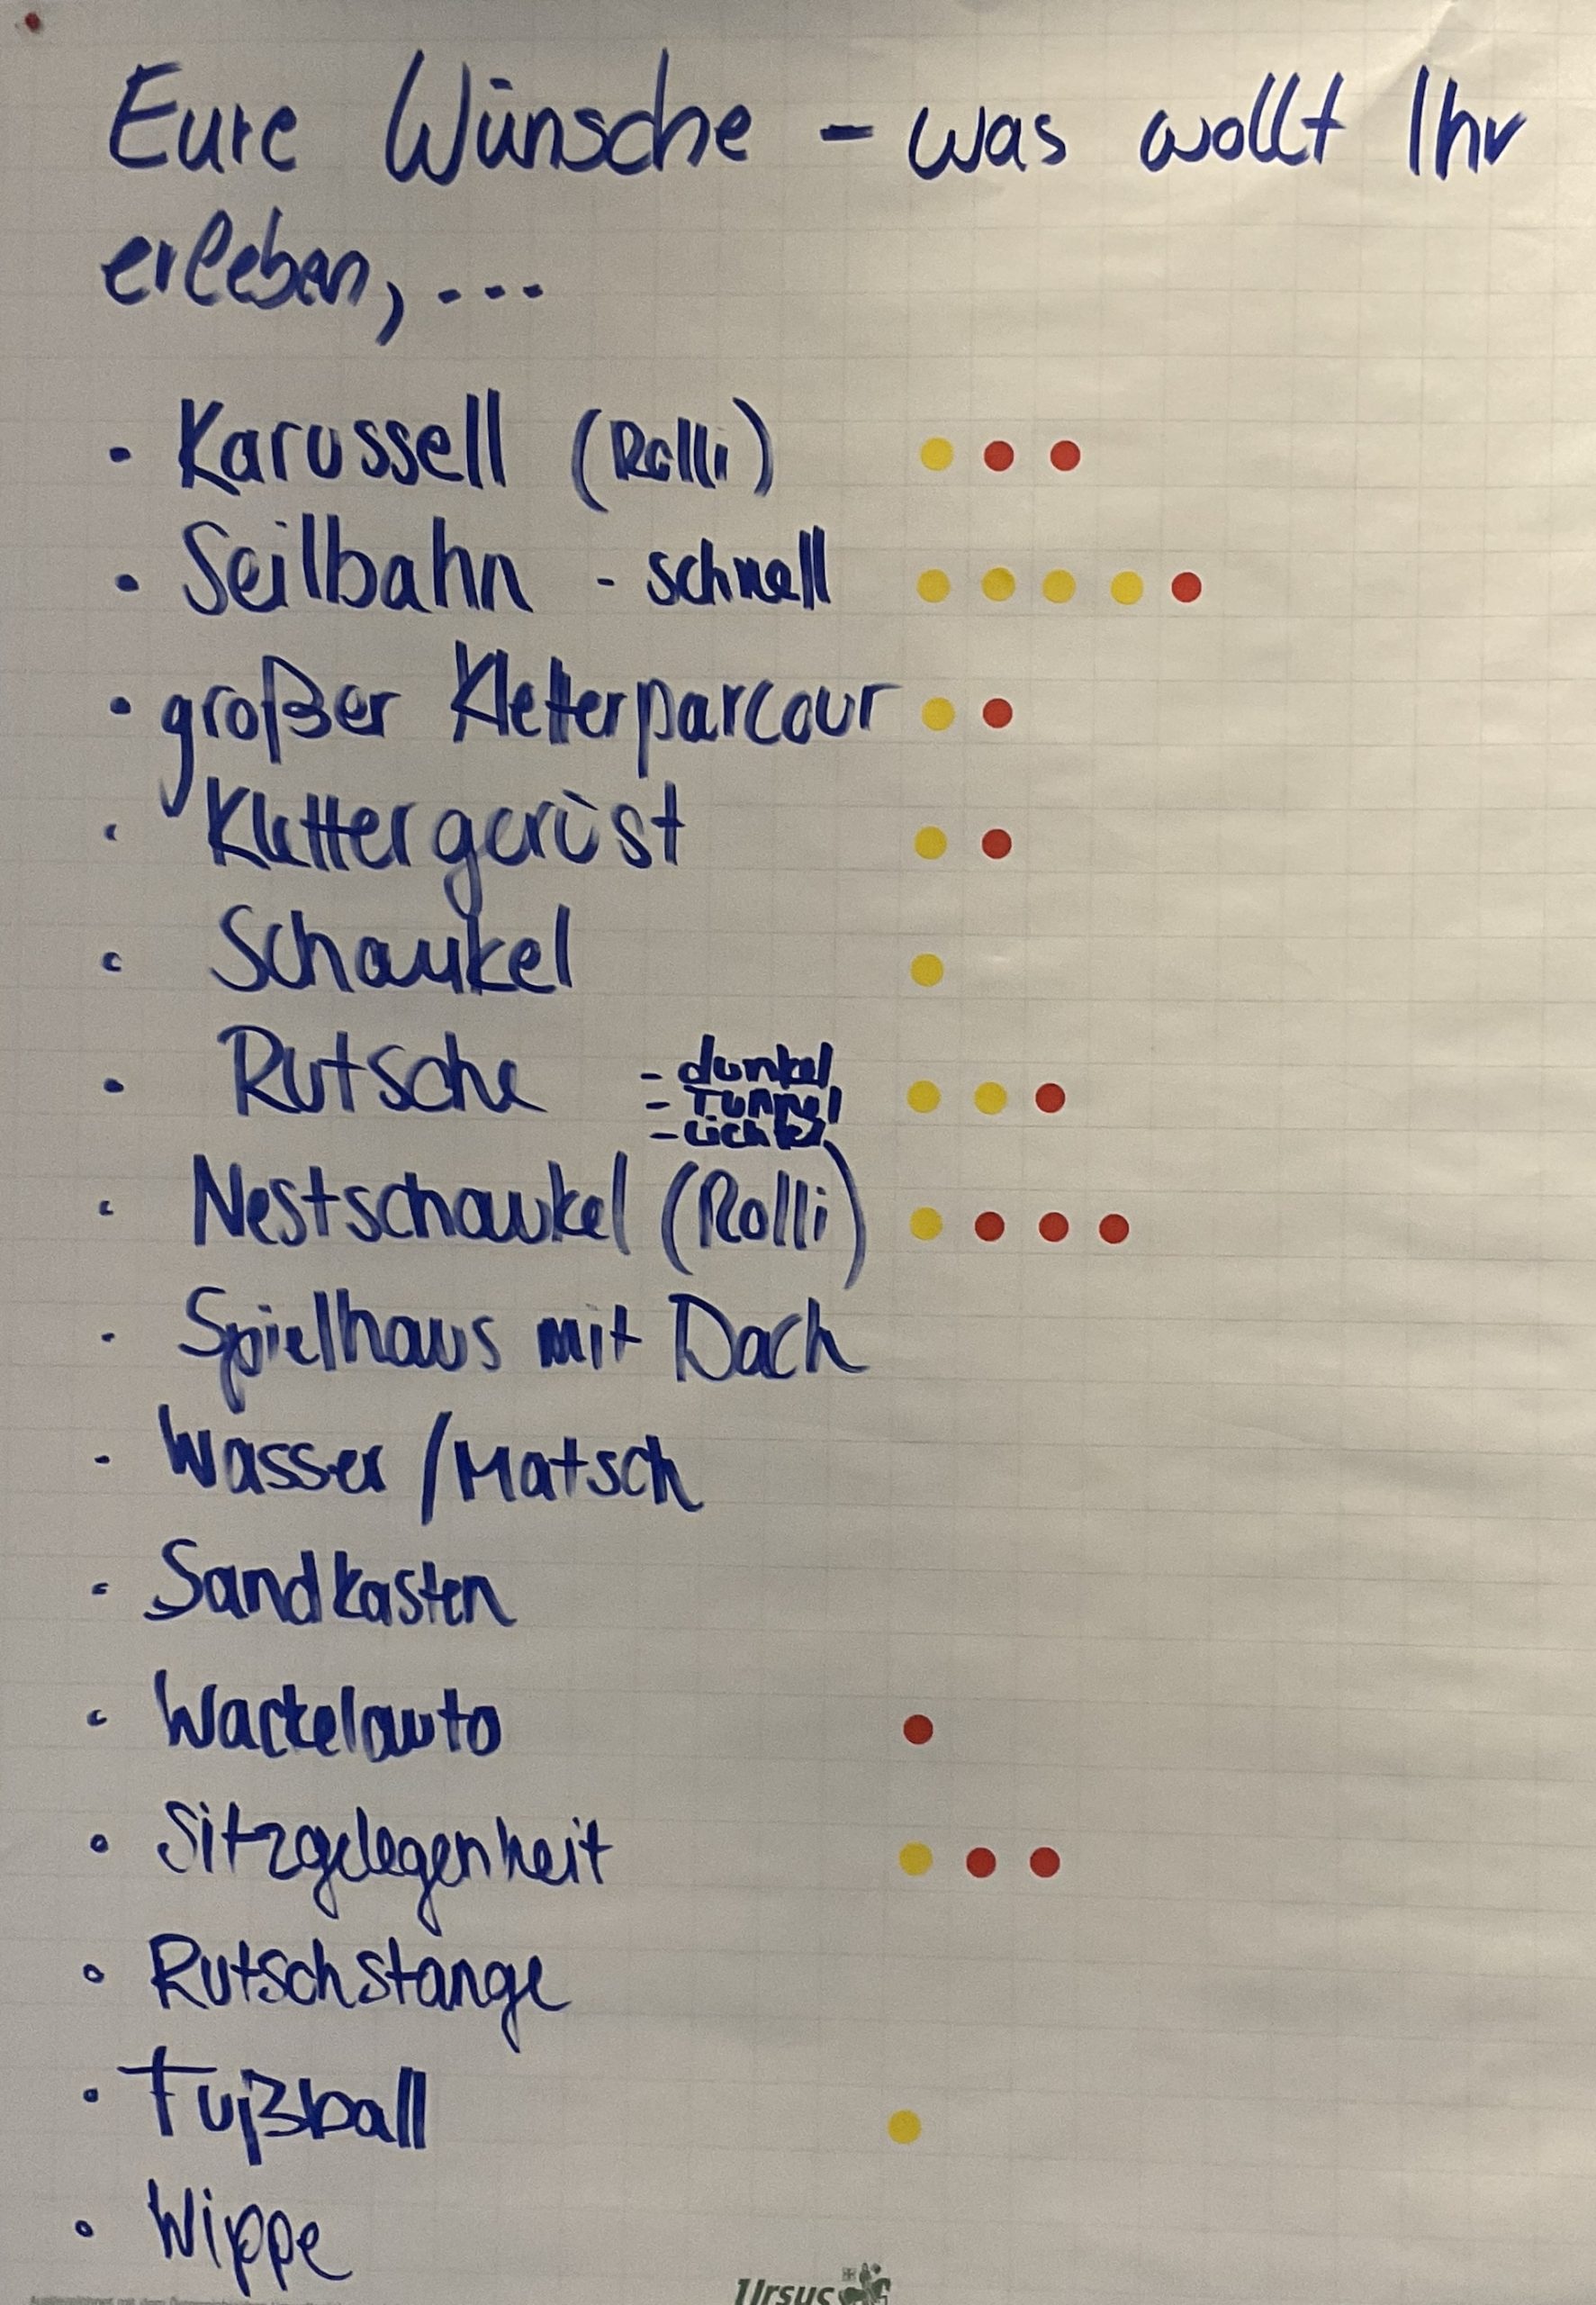 Eure Wünsche - was wollt Ihr
erleben, ...
• Karussell (Rolli)
• Seilbahn - schnell
• großer Kletterparcour
• Klettergerüst
• Schaukel
• Rutsche - dunkel
- Tunnel
- Lichter
• Nestschaukel (Rolli)
• Spielhaus mit Dach
• Wasser / Matsch
• Sandkasten
• Wackelauto
• Sitzgelegenheit
• Rutschstange
• Fußball
• Wippe
Ursus